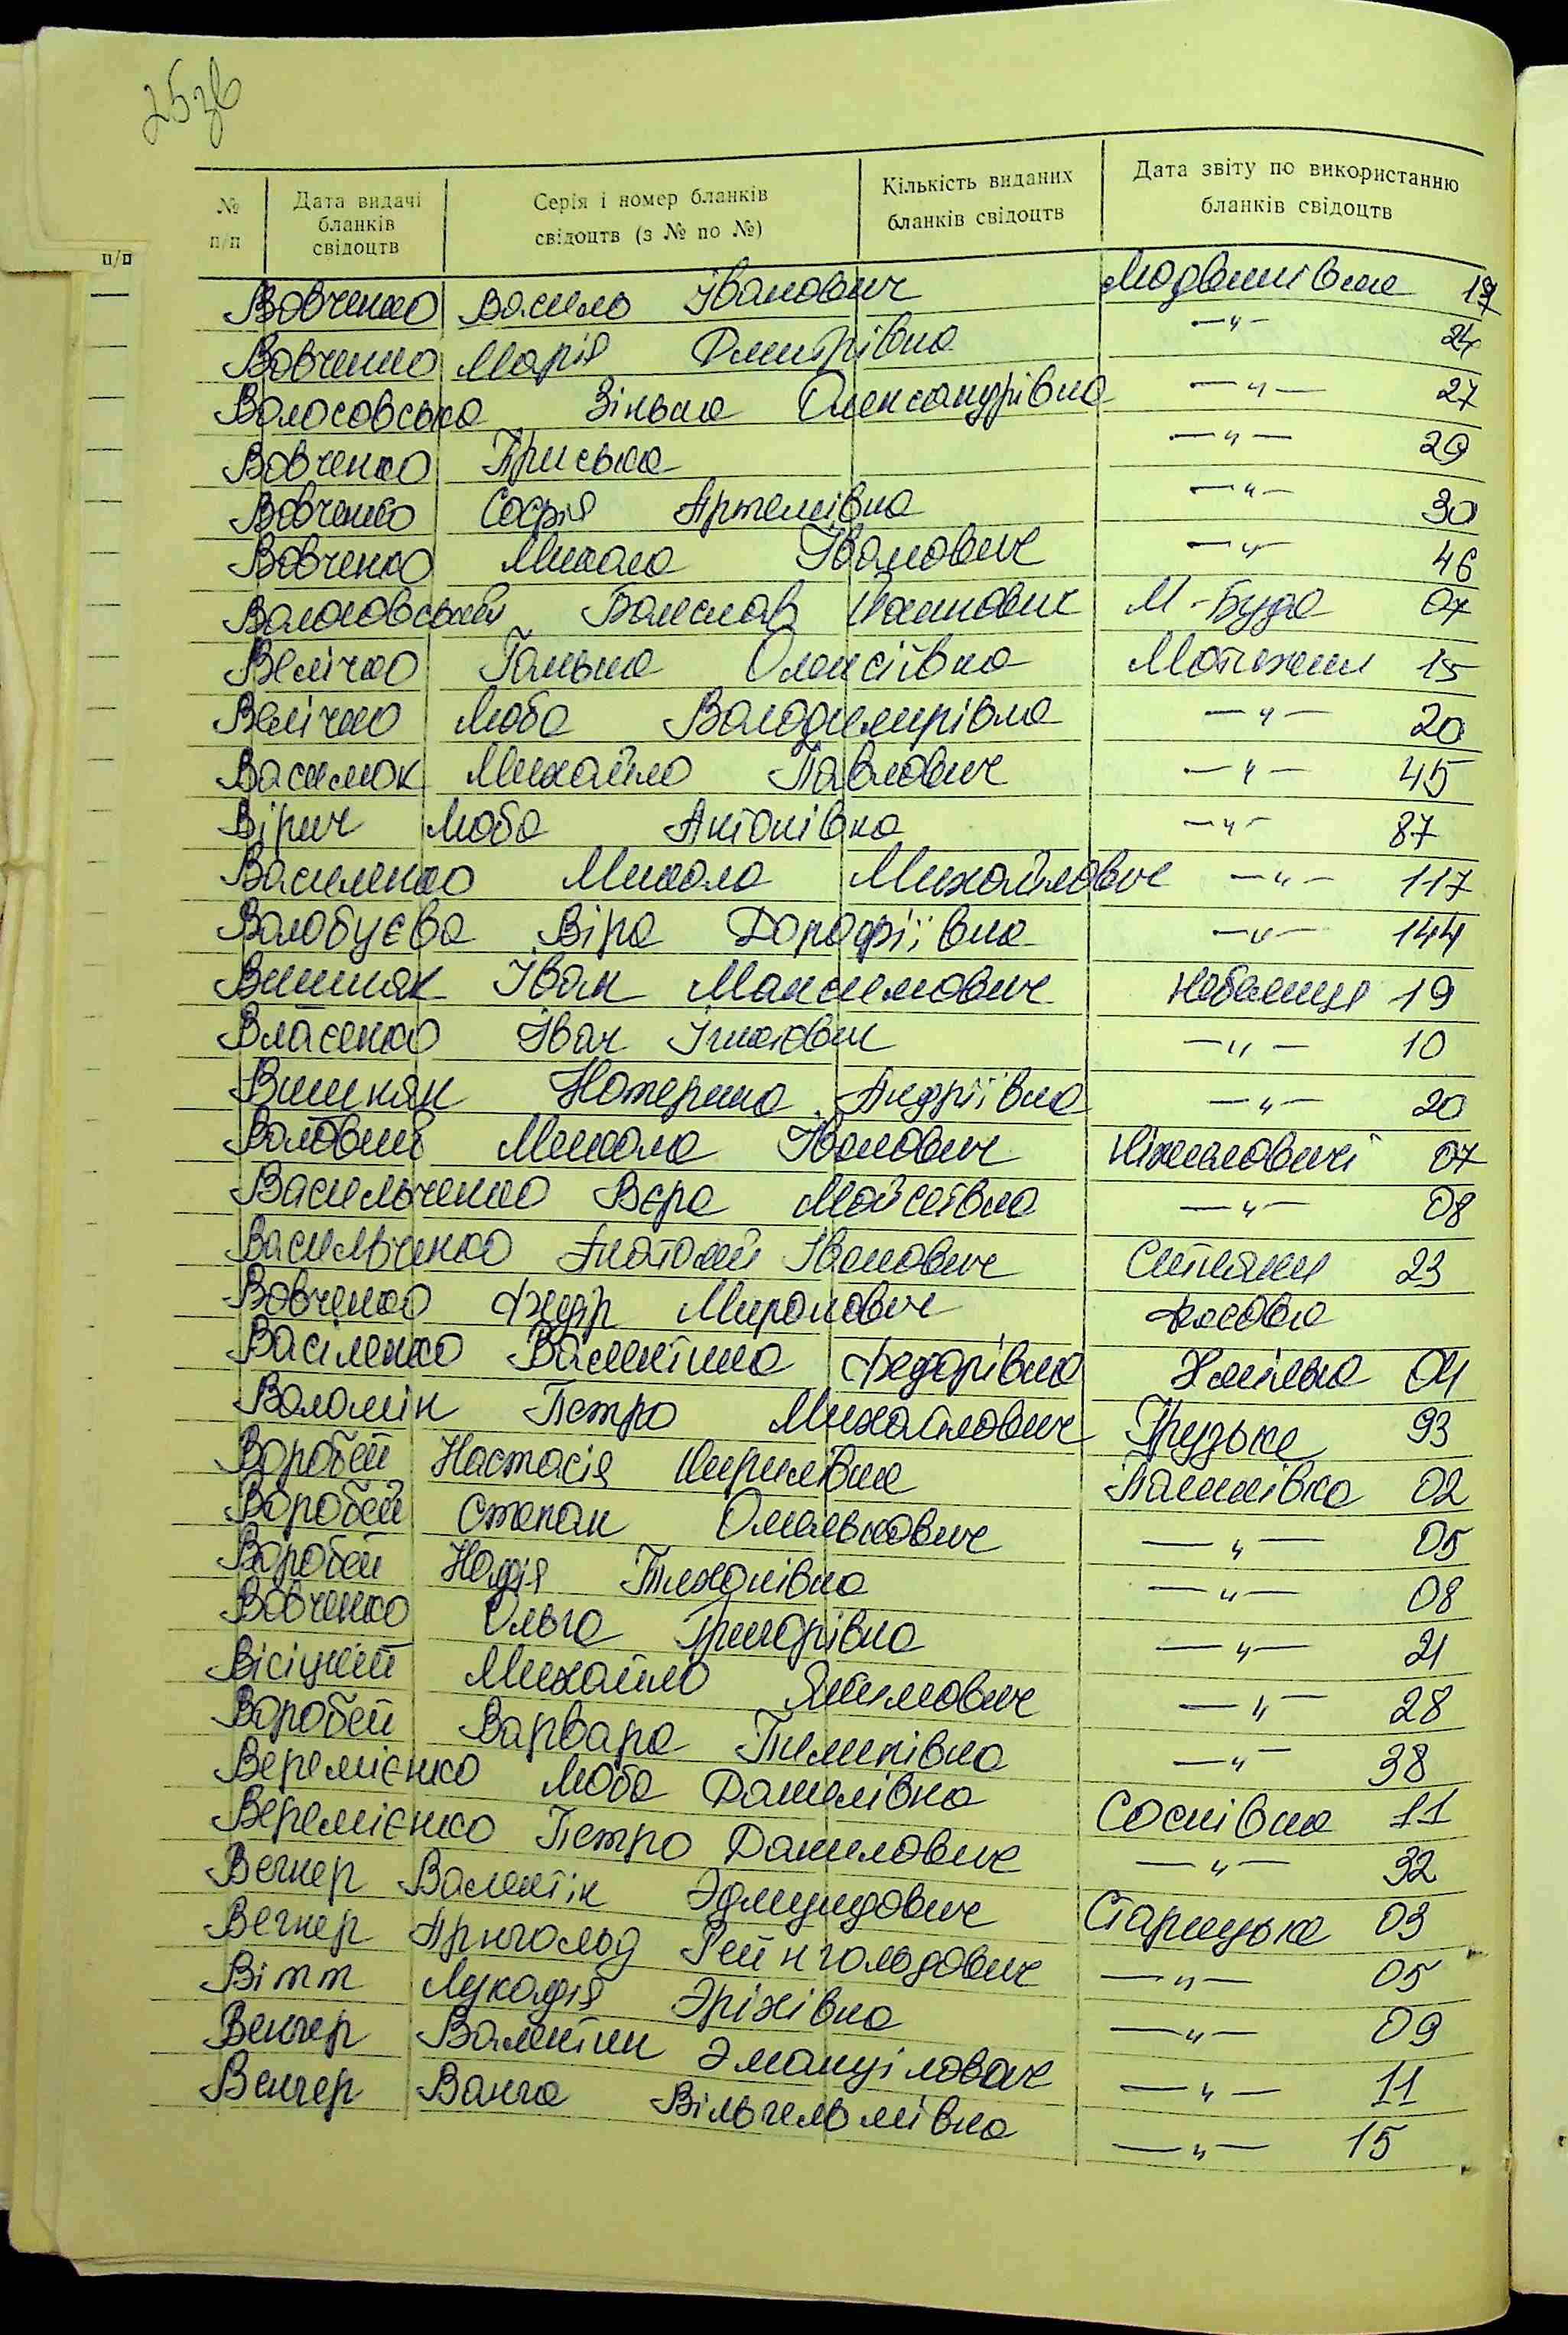 25зв
№ п/п
Дата видачі бланків свідоцтв
Серія і номер бланків свідоцтв (з № по №)
Кількість виданих бланків свідоцтв
Дата звіту по використанню бланків свідоцтв
п/п
Вовченко Василь Іванович Людвинівка 17
Вовченко Марія Дмитрівна —"— 24
Волосовська Зінька Олександрівна —"— 27
Вовченко Приська —"— 29
Вовченко Софія Артемівна —"— 30
Вовченко Микола Іванович —"— 46
Болеслав М-Буда 07
Велічко Ганька Олексіївна Мотижин 15
Велічко Люба Володимирівна —"— 20
Василюк Михайло Павлович —"— 45
Вірич Люба Антонівна —"— 87
Василенко Микола Михайлович —"— 117
Волобуєва Віра Дорофіївна —"— 144
Вишняк Іван Максимович Небелиця 19
Власенко Іван Ігнатович —"— 10
Вишняк Катерина Андріївна —"— 20
Микола Іванович Ніжиловичі 07
Васильченко Вєра Мойсеївна —"— 08
Васильченко Анатолій Іванович Ситняки 23
Вовченко Федір Миронович Фасова
Васіленко Валентина Федорівна Хмільна 04
Воломін Петро Михайлович Грузьке 93
Воробей Настасія Кирилівна Пашківка 02
Воробей Степан Омелькович —"— 05
Воробей Надія Тихонівна —"— 08
Вовченко Ольга Григорівна —"— 21
Вісіцкий Михайло Якимович —"— 28
Воробей Варвара Пилипівна —"— 38
Веремієнко Люба Данилівна Соснівка 11
Веремієнко Петро Данилович —"— 32
Вегнер Валентін Эдмундович Старицька 03
Вегнер Арнгольд Рейнгольдович —"— 05
Вітт Лукадія Эріхівна —"— 09
Венгер Валентин —"— 11
Венгер Ванга Вільгельмівна —"— 15